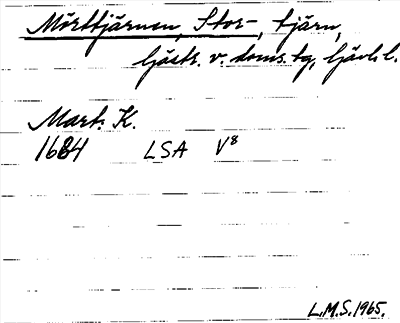 Mörttjärnen, Stor-, tjärn,
Gästr. v. doms. tg, Gävleb. l.
Mart. K.
1684 LSA V8
L.M.S. 1965.